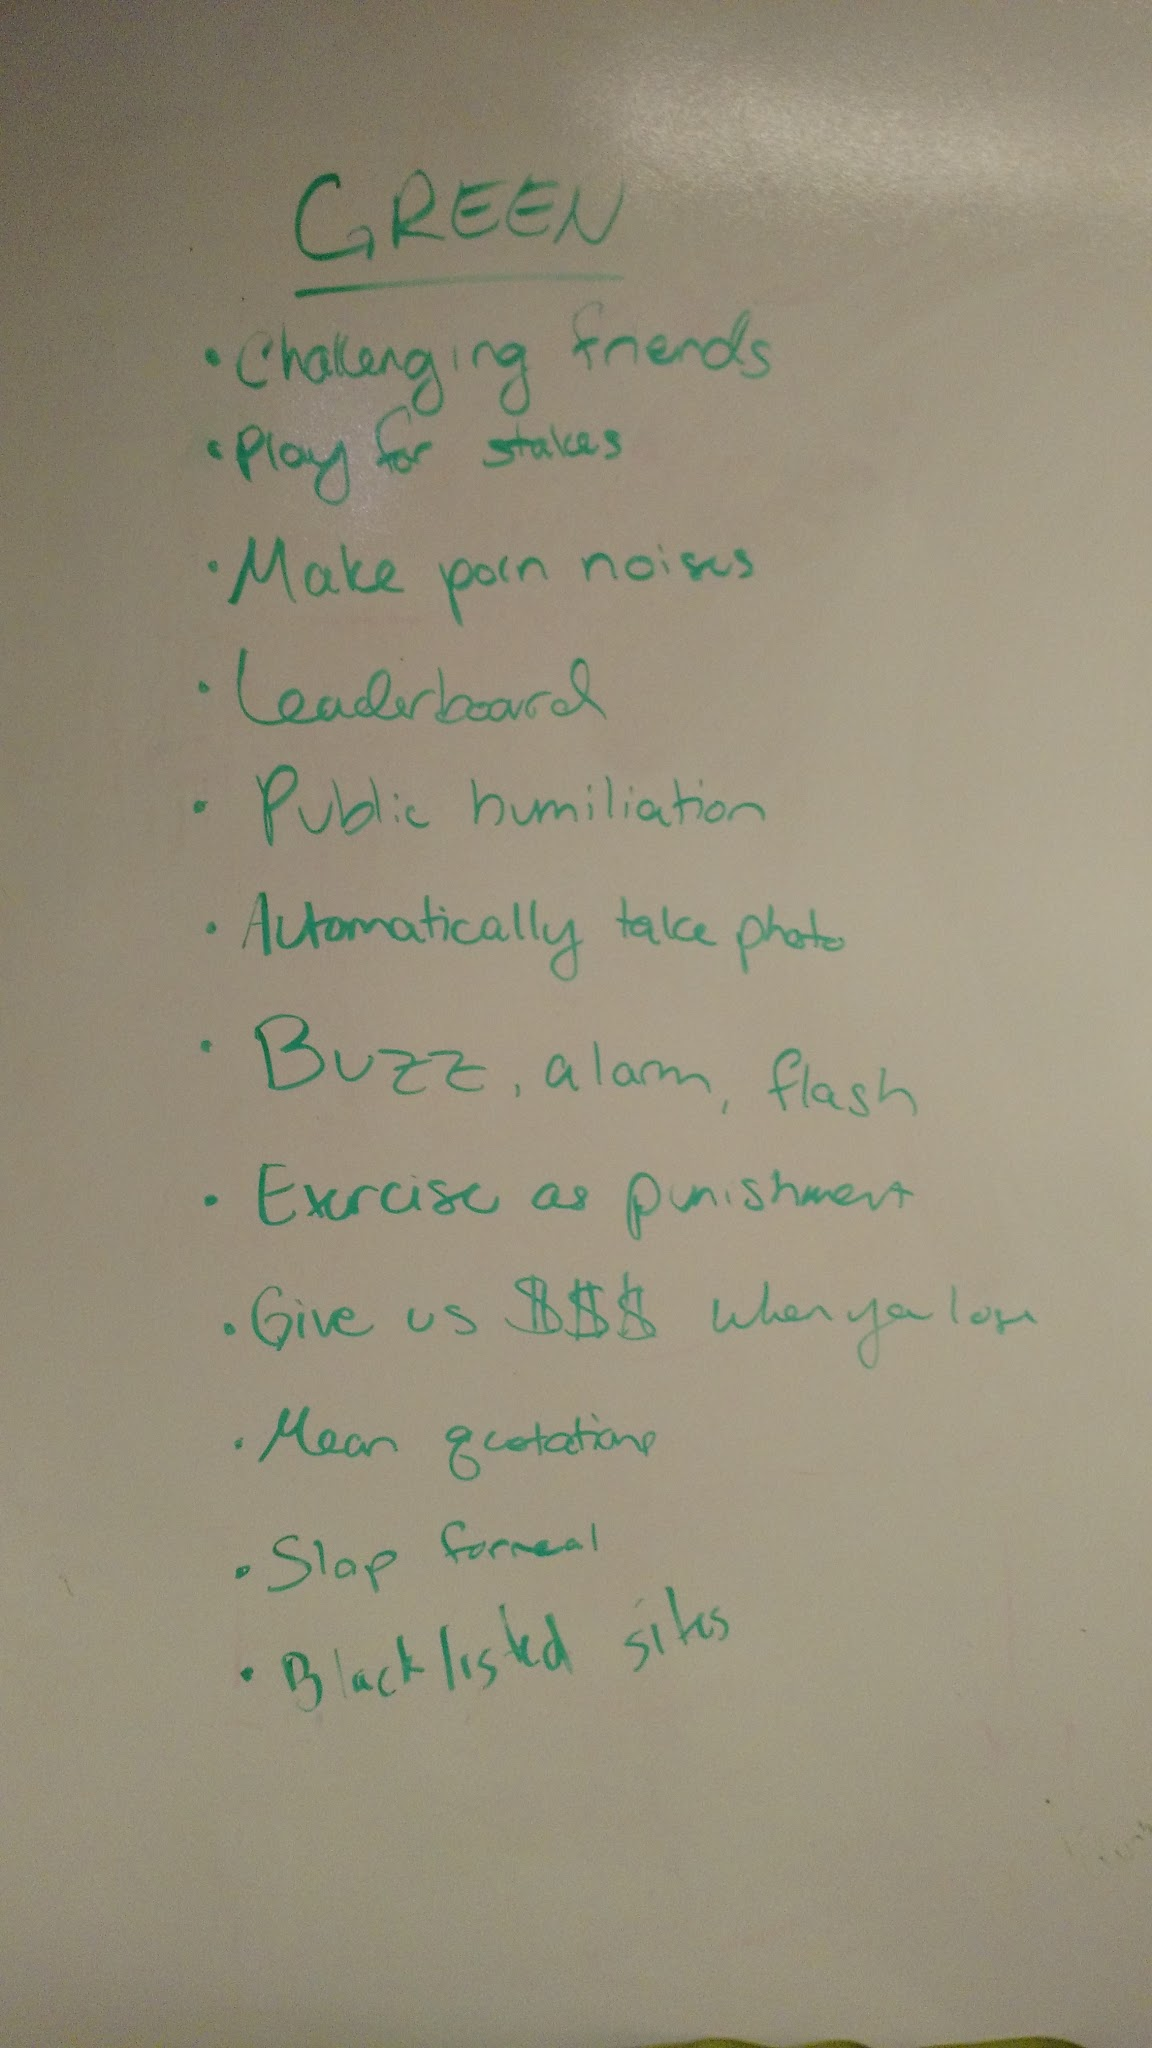 GREEN
• Challenging friends
• Play for stakes
• Make porn noises
• Leaderboard
• Public humiliation
• Automatically take photo
• Buzz, alarm, flash
• Exercise as punishment
• Give us $$$ when you lose
• Mean quotations
• Slap for real
• Blacklisted sites